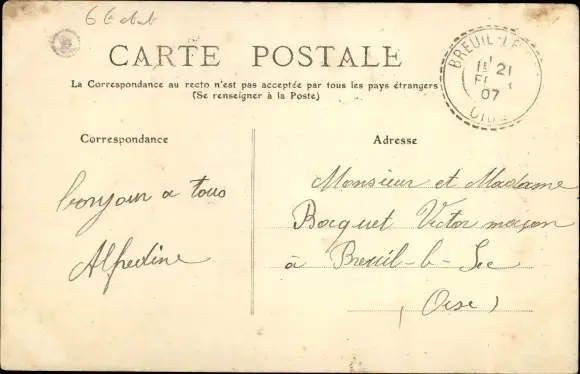 CARTE POSTALE
La Correspondance au recto n'est pas acceptée par tous les pays étrangers
(Se renseigner à la Poste)
BREUIL-LE
21
07
OISE
Correspondance
Adresse
bonjour a tous
Alfredine
Monsieur et Madame
Bacquet Victor maçon
à Breuil-le-Sec
(Oise)